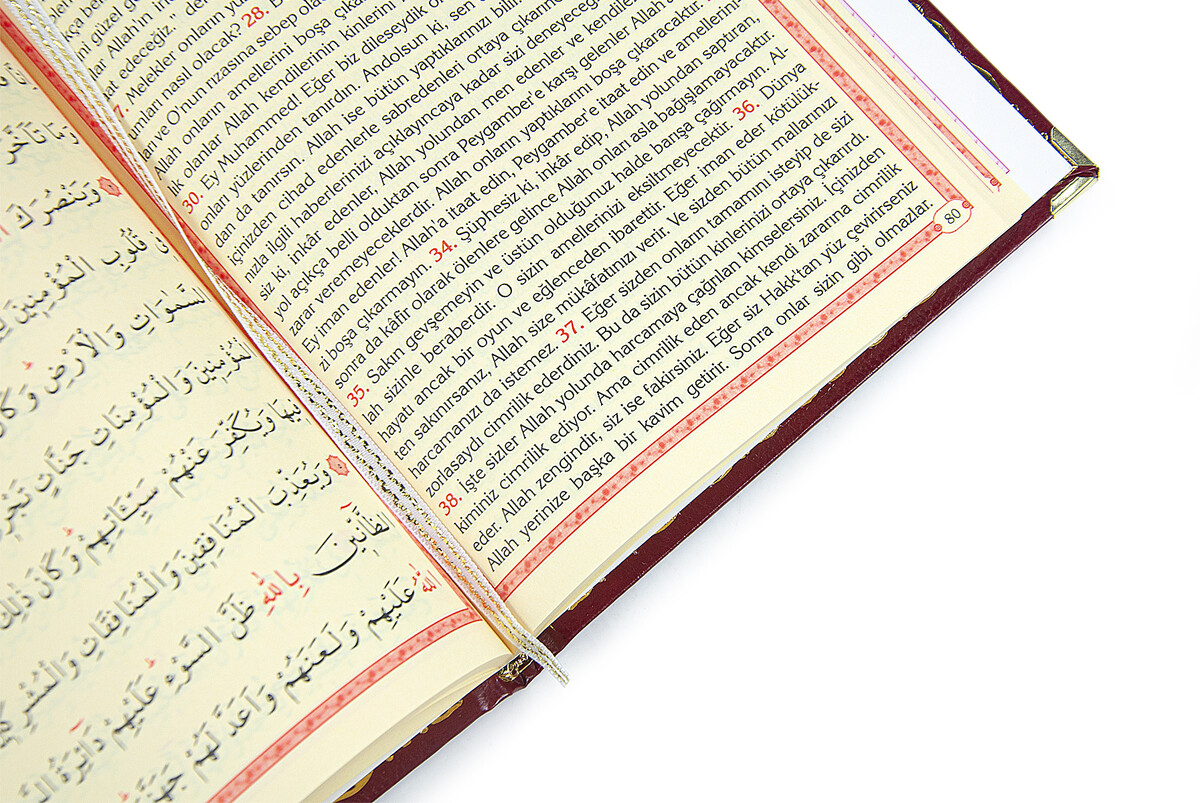 Allah'ın
at edeceğiz.
Melekler onların
umları nasıl olacak? 28.
ve O'nun rızasına sebep
Allah onların amellerini boşa
lik olanlar Allah kendilerinin kinlerini
30. Ey Muhammed! Eğer biz dileseydik
onları yüzlerinden tanırdın. Andolsun ki, sen
dan da tanırsın. Allah ise bütün yaptıklarınızı
içinizden cihad edenlerle sabredenleri ortaya
nızla ilgili haberlerinizi açıklayıncaya kadar sizi
siz ki, inkâr edenler, Allah yolundan men edenler ve
yol açıkça belli olduktan sonra Peygamber'e karşı gelenler
zarar veremeyeceklerdir. Allah onların yaptıklarını boşa çıkaracaktır.
Ey iman edenler! Allah'a itaat edin, Peygamber'e itaat edin ve amellerini-
zi boşa çıkarmayın. 34. Şüphesiz ki, inkâr edip, Allah yolundan saptıran,
sonra da kâfir olarak ölenlere gelince Allah onları asla bağışlamayacaktır.
35. Sakın gevşemeyin ve üstün olduğunuz halde barışa çağırmayın. Al-
lah sizinle beraberdir. O sizin amellerinizi eksiltmeyecektir. 36. Dünya
hayatı ancak bir oyun ve eğlenceden ibarettir. Eğer iman eder kötülük-
ten sakınırsanız, Allah size mükâfatınızı verir. Ve sizden bütün mallarınızı
harcamanızı da istemez. 37. Eğer sizden onların tamamını isteyip de sizi
zorlasaydı cimrilik ederdiniz. Bu da sizin bütün kinlerinizi ortaya çıkarırdı.
38. İşte sizler Allah yolunda harcamaya çağrılan kimselersiniz. İçinizden
kiminiz cimrilik ediyor. Ama cimrilik eden ancak kendi zararına cimrilik
eder. Allah zengindir, siz ise fakirsiniz. Eğer siz Hakk'tan yüz çevirirseniz
Allah yerinize başka bir kavim getirir. Sonra onlar sizin gibi olmazlar.
80
تَاَخَّرَ
وَيَنْصُرَكَ
قُلُوبِ الْمُؤْمِنِينَ
السَّمٰوَاتِ وَالْاَرْضِ وَكَانَ
الْمُؤْمِنِينَ وَالْمُؤْمِنَاتِ جَنَّاتٍ
فِيهَا وَيُكَفِّرَ عَنْهُمْ سَيِّئَاتِهِمْ وَكَانَ ذٰلِكَ
وَيُعَذِّبَ الْمُنَافِقِينَ وَالْمُنَافِقَاتِ
الظَّٓانِّينَ بِاللّٰهِ ظَنَّ السَّوْءِ عَلَيْهِمْ دَٓائِرَةُ
اللّٰهُ عَلَيْهِمْ وَلَعَنَهُمْ وَاَعَدَّ لَهُمْ